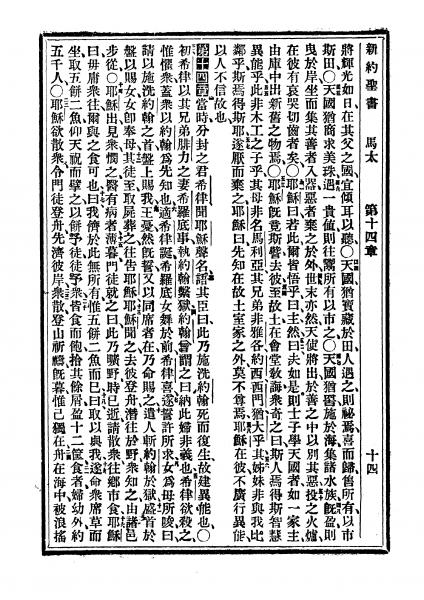 新約聖書 馬太 第十四章 十四
將輝光如日在其父之國宜傾耳以聽〇天國猶寶藏於田人遇之則祕焉喜而歸售所有以市
斯田〇天國猶商求美珠遇一貴値則往鬻所有以市之〇天國猶罟施於海集諸水族旣盈則
曳於岸坐而集其善者入器惡者棄之於外世末亦然天使將出於善之中以別其惡投之火爐
在彼有哀哭切齒者矣〇耶穌曰若此爾皆悟乎曰主然曰夫如是則士子學天國者如一家主
由庫中出新舊之物焉〇耶穌旣竟斯譬去彼至故土在會堂敎誨衆奇之曰斯人焉得斯智慧
異能乎此非木工之子乎其母非名馬利亞其兄弟非雅各約西西門猶大乎其姊妹非與我比
鄰乎斯焉得斯耶遂厭而棄之耶穌曰先知在故土室家之外莫不尊焉耶穌在彼不廣行異能
以人不信故也
第十四章當時分封之君希律聞耶穌聲名語其臣曰此乃施洗約翰死而復生故建異能也〇
初希律以其兄弟腓力之妻希羅底事執約翰繫獄約翰嘗謂之曰納此婦非義也希律欲殺之
惟懼衆蓋衆以約翰爲先知也適希律誕希羅底女舞於前希律喜遂誓許所求女爲母所唆曰
請以施洗約翰之首盤上賜我王憂然旣誓又以同席者在乃命賜之遣人斬約翰於獄盛首於
盤以賜女女卽奉母其徒至取屍葬之往告耶穌耶穌聞之去彼登舟潛往於野衆知之由諸邑
步從〇耶穌出見衆憫之醫有病者薄暮門徒就之曰此乃曠野時已逝請散衆往鄉市食耶穌
曰毋庸衆往爾與之食可也曰我儕於此無所有惟五餅二魚而已曰取以與我遂命衆席草而
坐取五餅二魚仰天祝而擘之以餅予徒徒予衆皆食而飽拾其餘屑盈十二筐食者婦幼外約
五千人〇耶穌欲散衆令門徒登舟先濟彼岸衆散登山祈禱旣暮惟己獨在舟在海中被浪搖